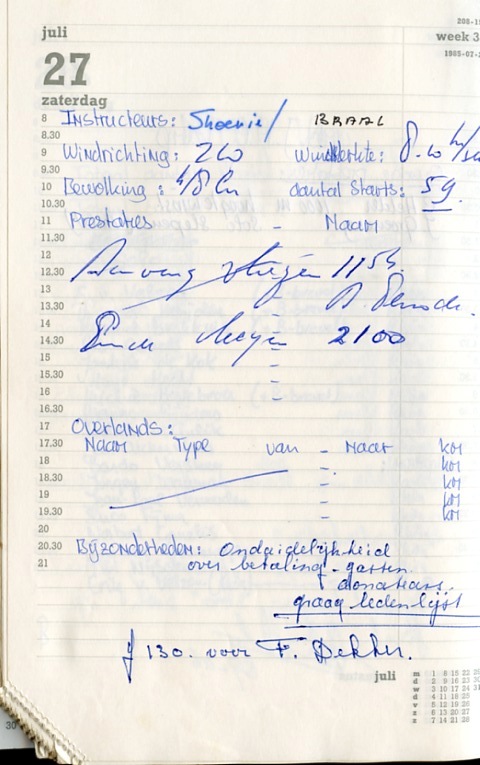 208-15
juli
week 3
1985-07-2
27
zaterdag
8 Instructeurs: / BRAAL
8.30
9 Windrichting: 240 Windsterkte: 8-10
9.30
10 Bewolking: 4/8 Cu Aantal Starts: 59
10.30
11 Prestaties - Naam
11.30
12 Aanvang vliegen 1154
12.30
13
13.30
14 Einde vliegen 2100
14.30
15
15.30
16
16.30
17 Overlands:
17.30 Naam Type van - Naar km
18 - km
18.30 - km
19 - km
19.30 - km
20
20.30 Bijzonderheden: Onduidelijkheid
21 over betaling - gasten
donateurs.
graag ledenlijst
f 130. voor F. Dekker.
juli
m 1 8 15 22 29
d 2 9 16 23 30
w 3 10 17 24 31
d 4 11 18 25
v 5 12 19 26
z 6 13 20 27
z 7 14 21 28
30